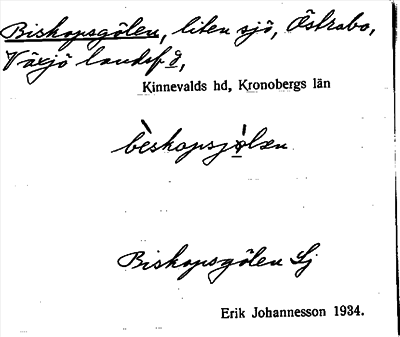 Biskopsgölen, liten sjö, Östrabo,
Växjö landsf d,
Kinnevalds hd, Kronobergs län
bèskopsjɷ̀læn
Biskopsgölen Sj
Erik Johannesson 1934.